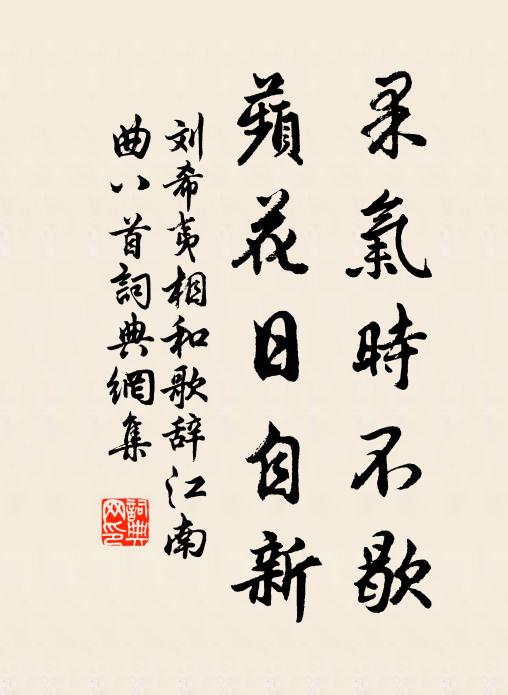 果氣時不歇
蘋花日自新
刘希夷相和歌辞江南
曲八首詞典網集
詞典
网印